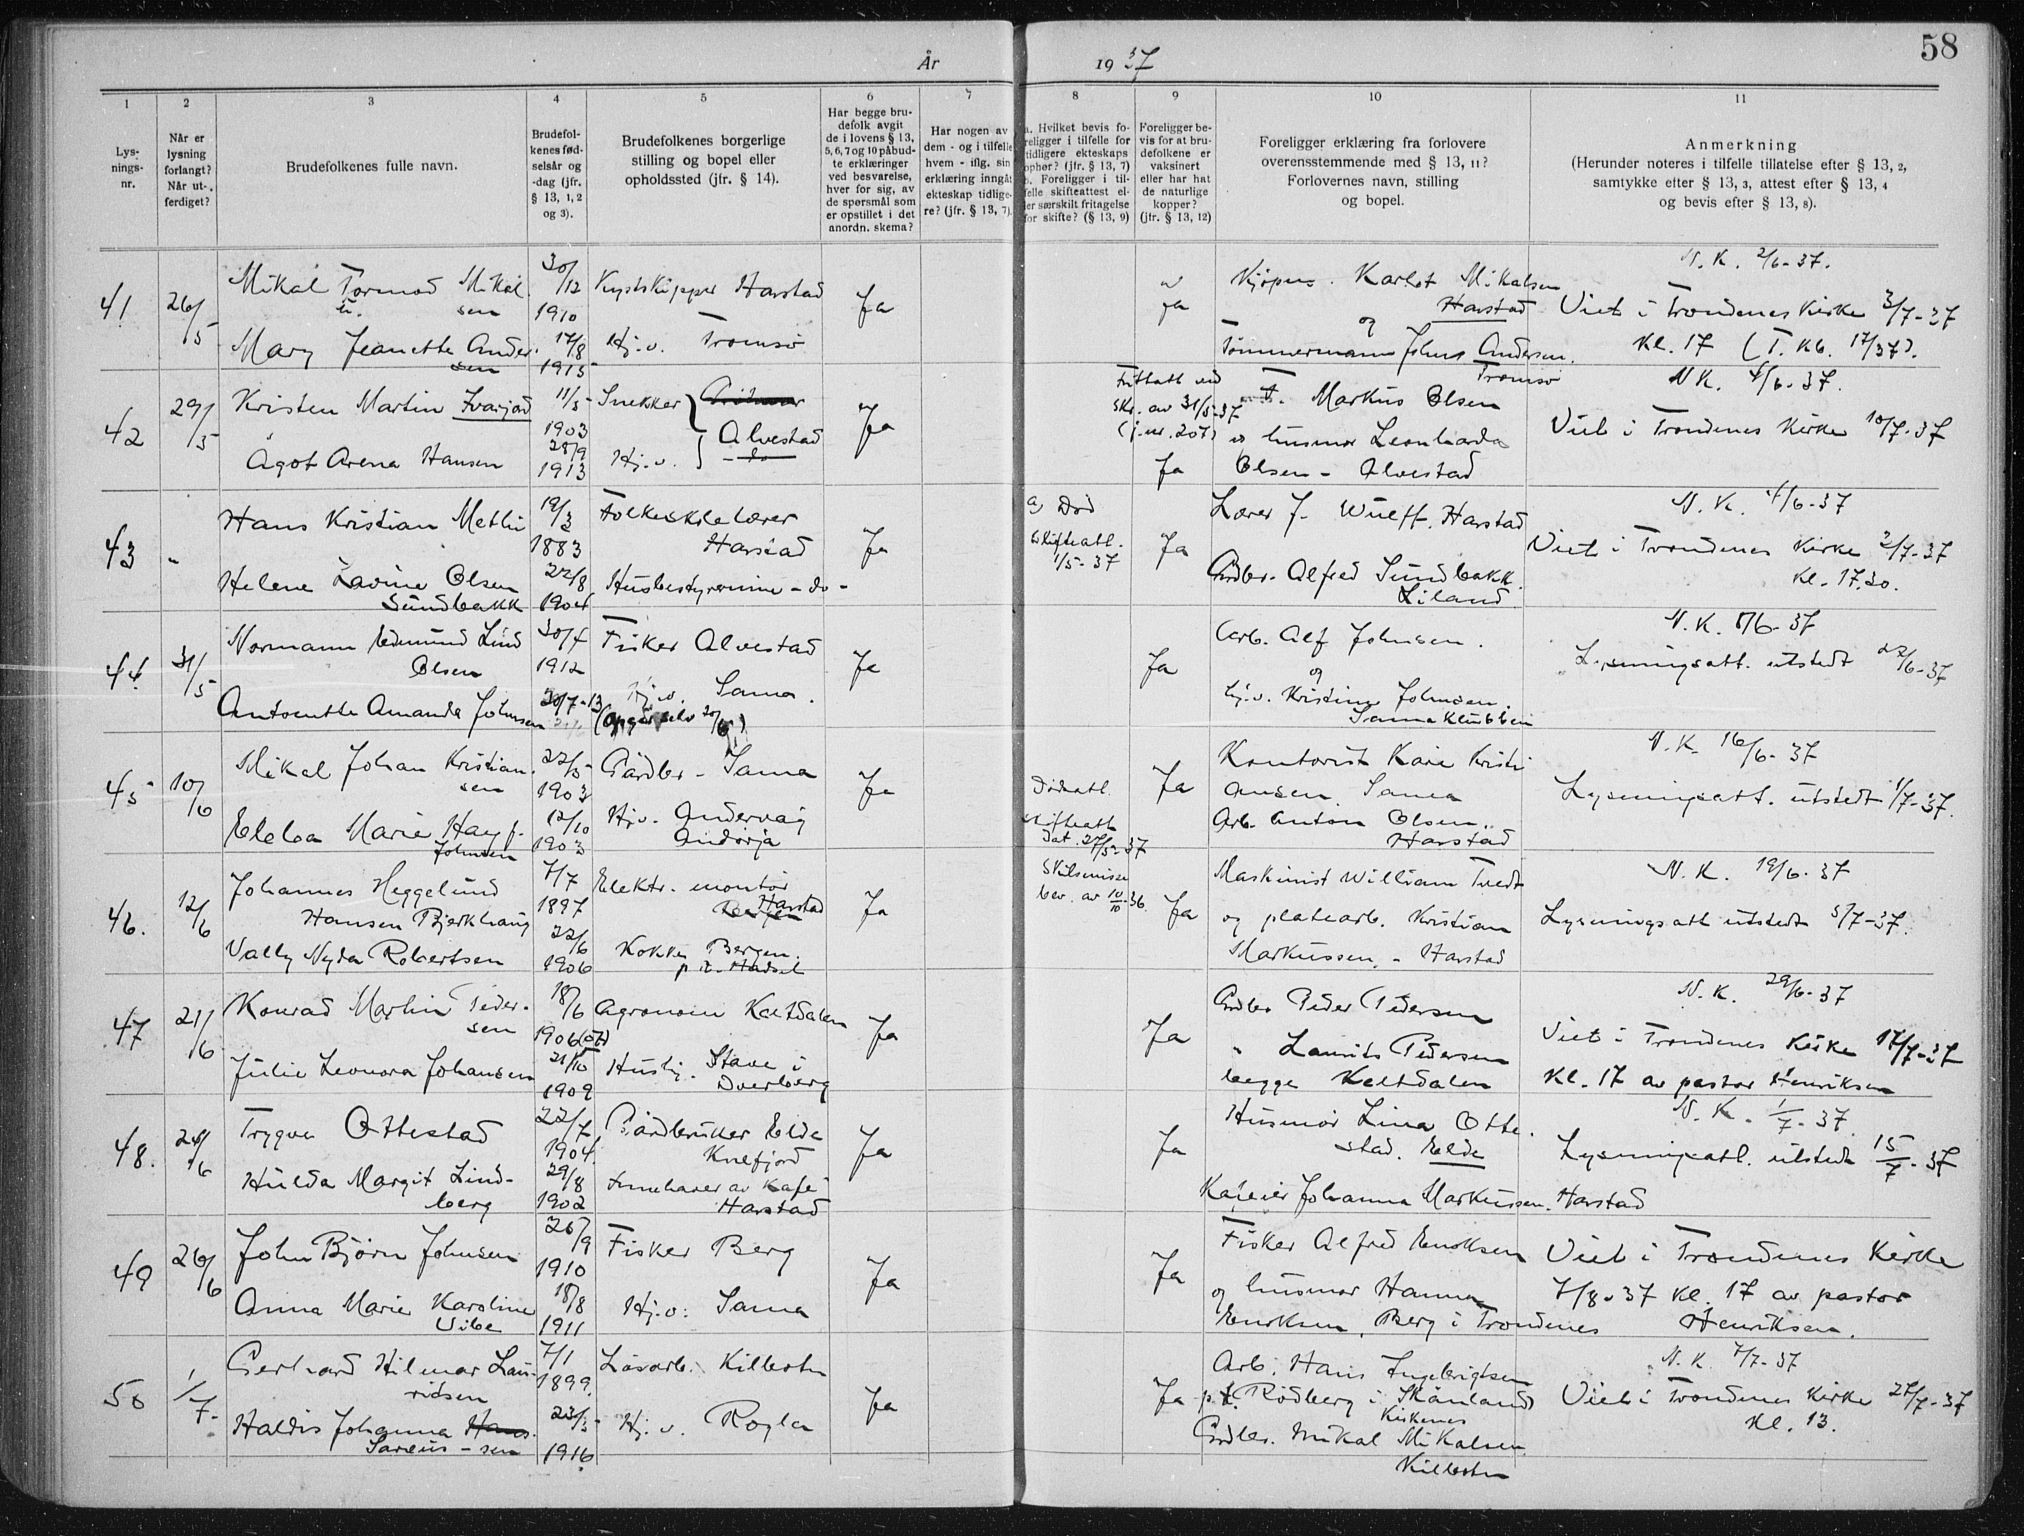 58
År 1937
1 2 3 4 5 6 7 8 9 10 11
Lysningsnr.
Når er lysning forlangt? Når utferdiget?
Brudefolkenes fulle navn.
Brudefolkenes fødselsår og -dag (jfr. § 13, 1, 2 og 3).
Brudefolkenes borgerlige stilling og bopel eller opholdssted (jfr. § 14).
Har begge brudefolk avgit de i lovens § 13, 5, 6, 7 og 10 påbudte erklæringer ved besvarelse, hver for sig, av de spørsmål som er opstillet i det anordn. skema?
Har nogen av dem - og i tilfelle hvem - iflg. sin erklæring inngått ekteskap tidligere? (jfr. § 13, 7).
a. Hvilket bevis foreligger i tilfelle for tidligere ekteskaps ophør? (jfr. § 13, 7) b. Foreligger i tilfelle skifteattest eller særskilt fritagelse for skifte? (§ 13, 9)
Foreligger bevis for at brudefolkene er vaksinert eller har hat de naturlige kopper? (jfr. § 13, 12)
Foreligger erklæring fra forlovere overensstemmende med § 13, 11? Forlovernes navn, stilling og bopel.
Anmerkning (Herunder noteres i tilfelle tillatelse efter § 13, 2, samtykke efter § 13, 3, attest efter § 13, 4 og bevis efter § 13, 8).
41 26/5 Mikal Tormod Mikalsen 30/12 1910 Kystskipper Harstad Ja
Ja Kjøpm. Karlot Mikalsen Harstad og
N.K. 2/6-37.
Viet i Trondenes Kirke 3/7-37
Kl. 17 (T. Kb. 17/37).
Mary Jeanette Andersen 17/8 1915 Hj.v. Tromsø
Tømmermann Johns Andersen. Tromsø
42 29/5 Kristen Martin Ivarjord 11/5 1903 Snekker Alvestad Ja
Fritatt ved skr. av 31/5-37 (j.nr. 207)
F. Markus Olsen
N.K. 4/6-37.
Viet i Trondenes Kirke 10/7-37
Ågot Arena Hansen 28/9 1913 Hj.v. - do
Ja husmor Leonharda Olsen - Alvestad
43 - Hans Kristian Methi 19/3 1883 Folkeskolelærer Harstad Ja
a) Død Skifteatt. 1/5-37
Ja Lærer J. Wulff. Harstad
N.K. 4/6-37
Viet i Trondenes Kirke 2/7-37
Kl. 17.30.
Helene Lavine Olsen Sundbakk 22/8 1904 Husbestyrerinne - do -
Grdbr. Alfred Sundbakk. Liland.
44. 31/5 Normann Edmund Lind Olsen 30/4 1912 Fisker Alvestad Ja
Ja Arb. Alf Johnsen. og
N.K. 7/6-37
Lysningsatt. utstedt 22/6-37
Antonette Amanda Johnsen 30/7-13 Hj.v. Sama.
hj.v. Kristine Johnsen. Sama Klubben
45 10/6 Mikal Johan Kristiansen 22/5 1903 Gårdbr - Sama Ja
Ja Kontorist Kåre Kristiansen. Sama
N.K. 16/6-37
Lysningsatt. utstedt 1/7-37.
Marie Johnsen 12/10 1903 Hj.v. Andervåg Andørja
Dødsatt. Skifteatt. dat. 27/5-37
Arb. Anton Olsen. Harstad
46. 12/6 Johannes Heggelund Hansen Bjerkhaug 7/7 1897 Elektr. montør Harstad Ja
Skilsmisse bev. av 10/10-36.
Ja Maskinist William Tvedt og platearb. Kristian Markussen. - Harstad
N.K. 19/6-37
Lysningsatt utstedt 5/7-37.
Vally Nyda Robertsen 22/6 1906 Kokke Bergen. p.t. Hadsel
47 21/6 Konrad Martin Pedersen 18/6 1906 (07) Agronom Keltdalen Ja
Ja Grdbr Peder Pedersen
" Laurits Pedersen begge Keltdalen
N.K. 29/6-37
Viet i Trondenes Kirke 17/7-37
Kl. 17 av pastor Henriksen
Julie Leonora Johansen 21/10 1909 Hush. Stave i Dverberg
48. 26/6 Trygve Ottestad 22/7 1904. Gårdbruker Elde Kvefjord Ja
Ja Husmor Lina Ottestad. Elde
N.K. 1/7-37.
Lysningsatt. utstedt 15/7-37
Hulda Margit Lindberg 29/8 1902 Innehaver av kafe Harstad
Johanna Markussen. Harstad
49 26/6 John Bjørn Johnsen 26/9 1910 Fisker Berg Ja
Ja Fisker Alfred Enoksen og husmor Hanna Enoksen, Berg i Trondenes
Viet i Trondenes Kirke 7/8-37 Kl. 17 av pastor Henriksen.
Anna Marie Karoline Vibe 18/8 1911 Hj.v. Sama
50 1/7- Gerhard Hilmar Lauridsen 7/1 1899. Løsarb. Killeston Ja
Ja Arb. Hans Ingebrigtsen p.t. Rødberg i Skånland
N.K. 7/7-37
Viet i Trondenes Kirke 27/7-37
Kl. 13.
Haldis Johanna 23/5 1916 Hj.v. Rogla
Grdbr. Mikal Mikalsen.